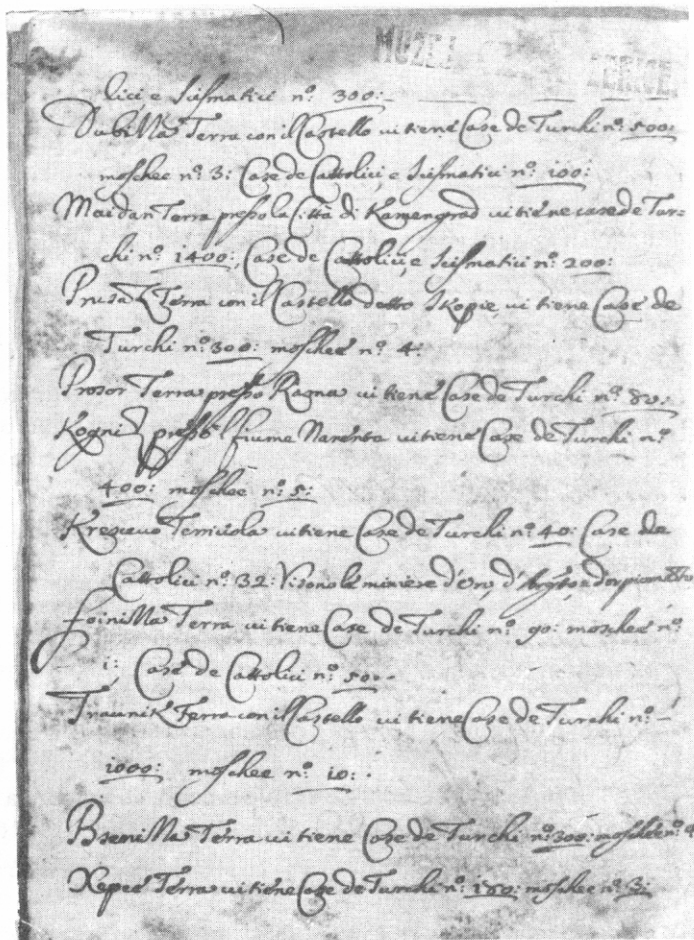 MUZEJ
lici, e Scismatici n.º 300:
DubiMa Terra con il Castello vi tiene Case de Turchi n.º 500:
moschee n.º 3: Case de Cattolici, e Scismatici n.º 100:
Maidan Terra presso la Città di Kamengrad vi tiene case de Tur-
chi n.º 1400:, Case de Cattolici, e Scismatici n.º 200:
Prusaz Terra con il Castello detto Skopie, vi tiene Case de
Turchi n.º 300: moschee n.º 4:
Prosor Terra presso Rama vi tiene Case de Turchi n.º 80:
Kogniz presso il fiume Narenta vi tiene Case de Turchi n.º
400: moschee n.º 5:
Krescevo Terricciola vi tiene Case de Turchi n.º 40: Case de
Cattolici n.º 32: Vi sono le miniere d'oro, d'
foiniMa Terra vi tiene Case de Turchi n.º 90: moschee n.º
i: Case de Cattolici n.º 50.
Traunik Terra con il Castello vi tiene Case de Turchi n.º -
1000: moschee n.º 10: .
BreniMa Terra vi tiene Case de Turchi n.º 300: moschee n.º
Xepce Terra vi tiene Case de Turchi n.º 180: moschee n.º 3: